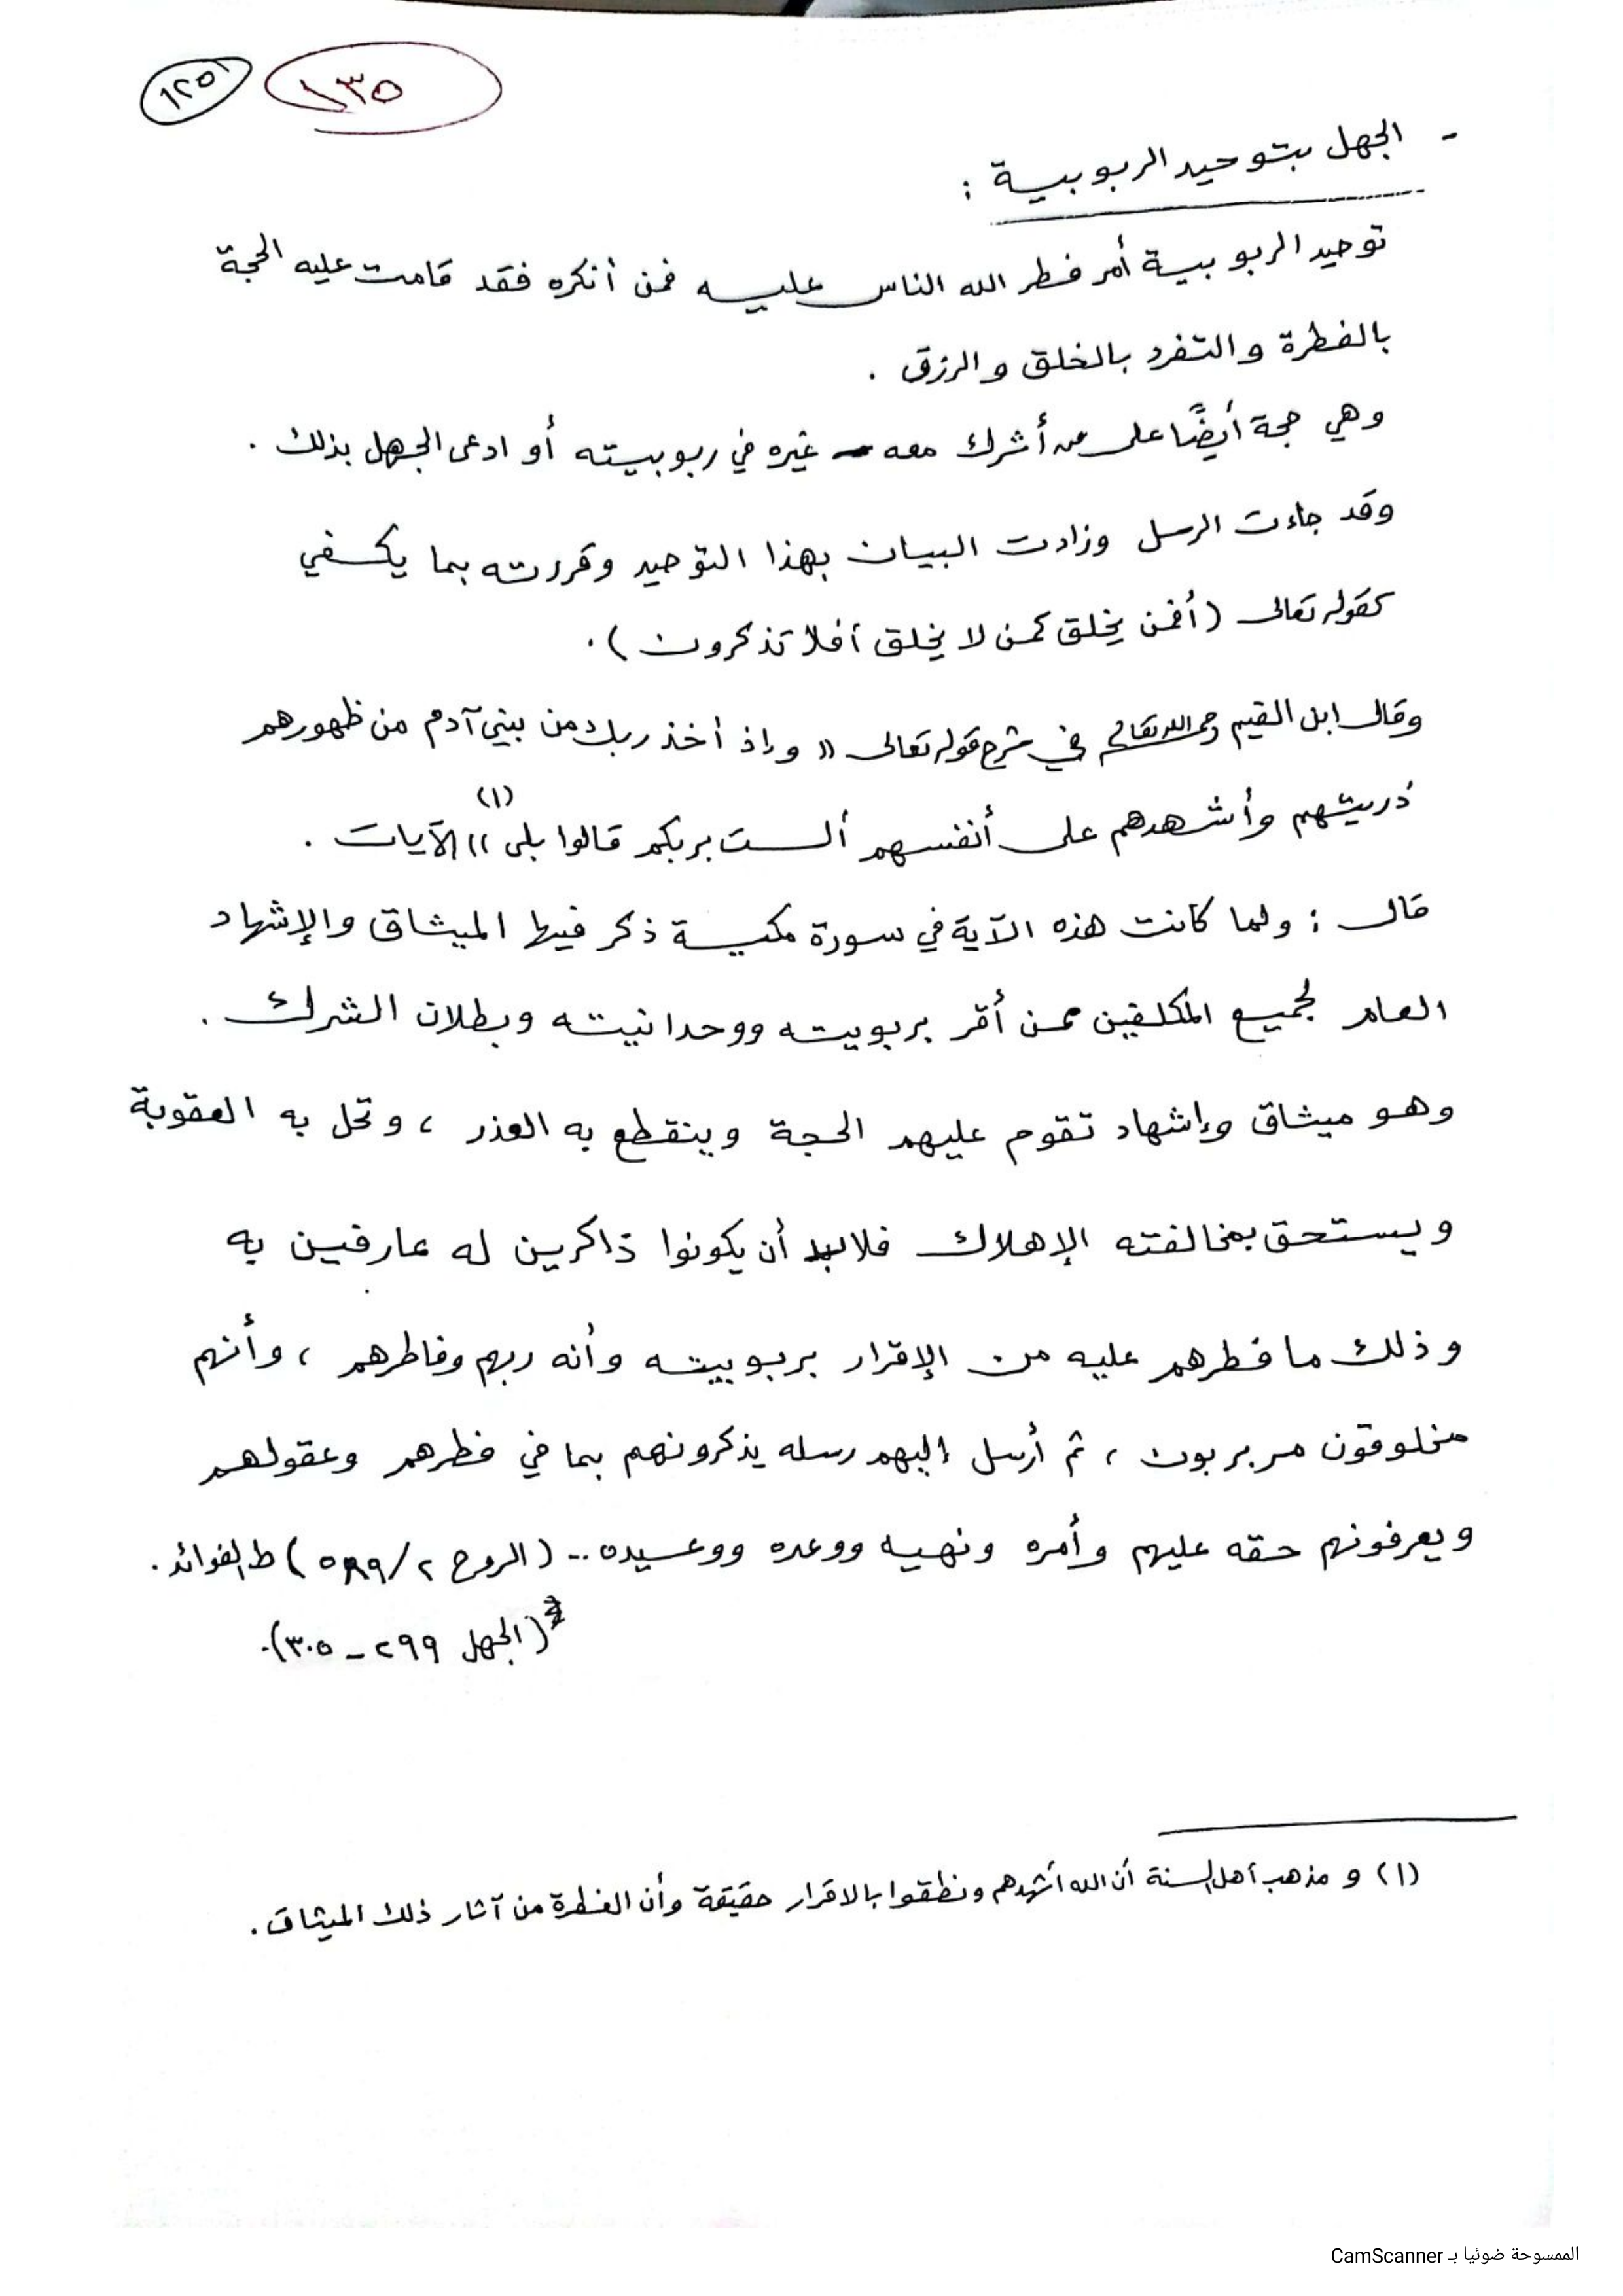 ١٣٥
١٢٥
- الجهل بتوحيد الربوبية :
توحيد الربوبية أمر فطر الله الناس عليه فمن أنكره فقد قامت عليه الحجة
بالفطرة والتفرد بالخلق والرزق .
وهي حجة أيضًا على من أشرك معه غيره في ربوبيته أو ادعى الجهل بذلك .
وقد جاءت الرسل وزادت البيان بهذا التوحيد وقررته بما يكفي
كقوله تعالى (أفمن يخلق كمن لا يخلق أفلا تذكرون ) .
وقال ابن القيم رحمه الله تعالى في شرح قوله تعالى (( وإذ أخذ ربك من بني آدم من ظهورهم
ذريتهم وأشهدهم على أنفسهم ألست بربكم قالوا بلى (١) )) الآيات .
قال : ولما كانت هذه الآية في سورة مكية ذكر فيها الميثاق والإشهاد
العام لجميع المكلفين ممن أقر بربوبيته ووحدانيته وبطلان الشرك .
وهو ميثاق وإشهاد تقوم عليهم الحجة وينقطع به العذر ، وتحل به العقوبة
ويستحق بمخالفته الإهلاك فلابد أن يكونوا ذاكرين له عارفين به
وذلك ما فطرهم عليه من الإقرار بربوبيته وأنه ربهم وفاطرهم ، وأنهم
مخلوقون مربربون ، ثم أرسل إليهم رسله يذكرونهم بما في فطرهم وعقولهم
ويعرفونهم حقه عليهم وأمره ونهيه ووعده ووعيده .. (الروح ٢/٥٨٩ ) ط الفوائد .
(الجهل ٢٩٩ - ٣٠٥) .
(١) و مذهب أهل السنة أن الله أشهدهم ونطقوا بالاقرار حقيقة وأن الفطرة من آثار ذلك الميثاق .
الممسوحة ضوئيا بـ CamScanner